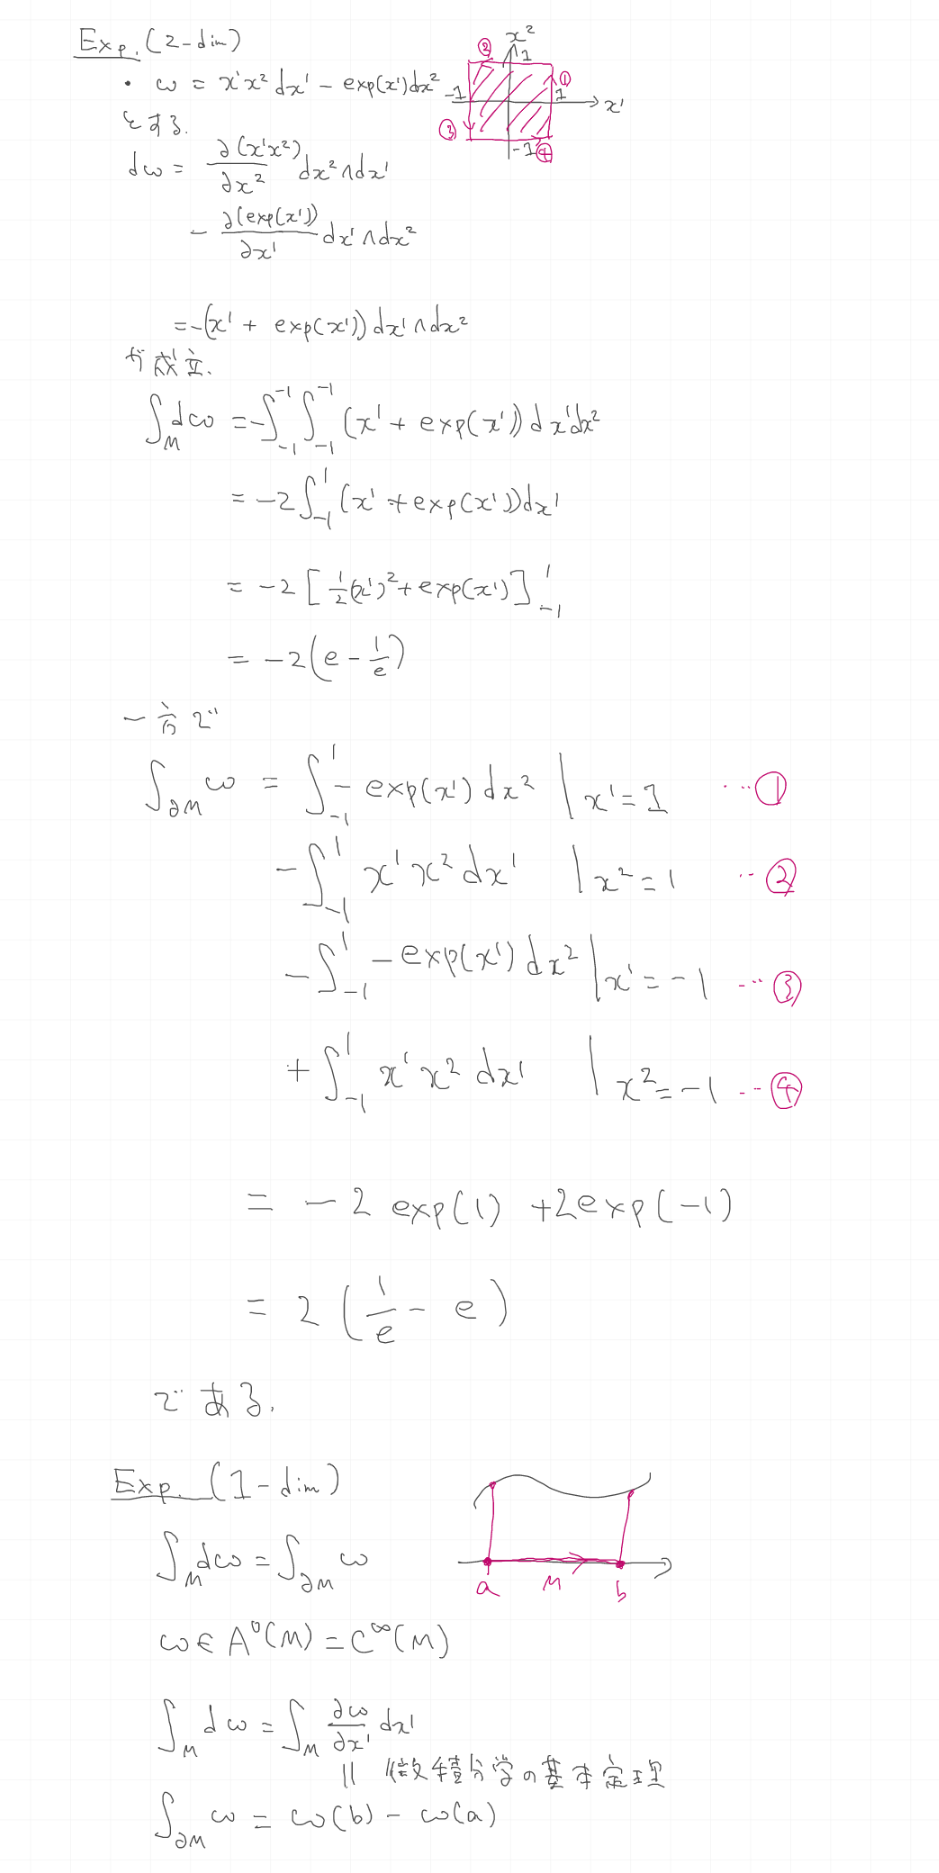 Exp. (2-dim)
x²
②
1
①
-1
1
x¹
③
-1
④
・ ω = x¹x² dx¹ - exp(x¹)dx²
とする.
dω = ∂(x¹x²)/∂x² dx²∧dx¹
- ∂(exp(x¹))/∂x¹ dx¹∧dx²
= -(x¹ + exp(x¹)) dx¹∧dx²
が成立.
∫_M dω = -∫_{-1}^{-1} ∫_{-1}^{-1} (x¹ + exp(x¹)) dx¹dx²
= -2∫_{-1}^{1} (x¹ + exp(x¹))dx¹
= -2 [ 1/2 (x¹)² + exp(x¹) ]_{-1}^{1}
= -2(e - 1/e)
一方で
∫_{∂M} ω = ∫_{-1}^{1} - exp(x¹) dx² | x¹=1 …①
- ∫_{-1}^{1} x¹x² dx¹ | x²=1 …②
- ∫_{-1}^{1} - exp(x¹) dx² | x¹=-1 …③
+ ∫_{-1}^{1} x¹x² dx¹ | x²=-1 …④
= -2 exp(1) + 2exp(-1)
= 2 (1/e - e)
である.
Exp. (1-dim)
∫_M dω = ∫_{∂M} ω
a
M
b
ω∈A⁰(M) = C^∞(M)
∫_M dω = ∫_M ∂ω/∂x¹ dx¹
|| 微積分学の基本定理
∫_{∂M} ω = ω(b) - ω(a)